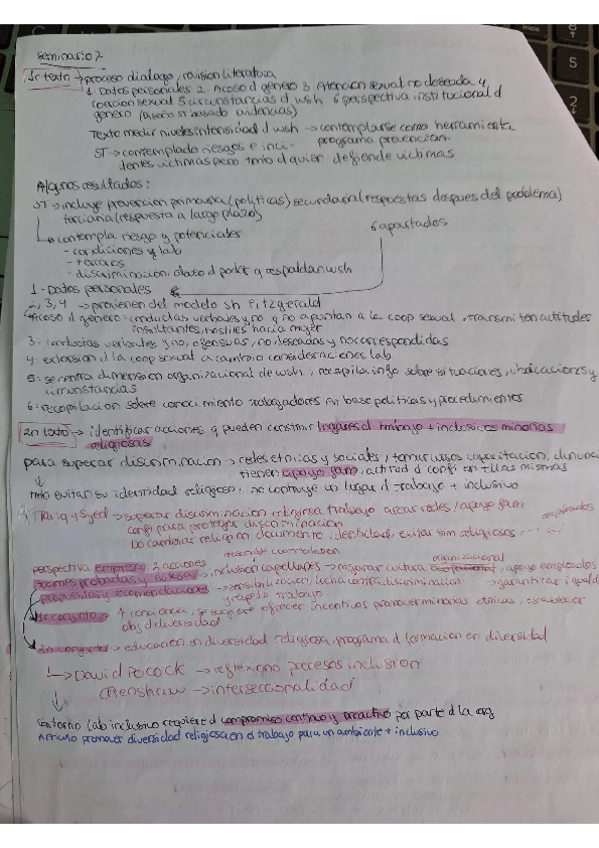 Seminario 7
1r texto → proceso dialogo, revision literatura
1 Datos personales 2 Acoso d genero 3 Atencion sexual no deseada 4
coaccion sexual 5 circunstancias d wsh 6 perspectiva institucional d
genero (diseño ST basado evidencias)
Texto medir niveles intensidad d wsh → contemplarse como herramienta
programa prevencion
ST → contemplado riesgos e inci-
dentes victimas pero tmb d quier defiende victimas
Algunos resultados:
ST → incluye prevencion primaria (politicas) secundaria (respuestas despues del problema)
terciaria (respuesta a largo plazo)
contempla riesgo y potenciales
6 apartados
- condiciones y lab
- discriminacion, abuso d poder q respaldan wsh
1 - Datos personales
2, 3, 4 → provienen del modelo sh Fitzgerald
Acoso d genero: conductas verbales y no q no apuntan a la coop sexual, transmiten actitudes
insultantes, hostiles hacia mujer
3: conductas verbales y no, ofensivas, no deseadas y no correspondidas
4: extorsion d la coop sexual a cambio consideraciones lab
5: se centra dimension organizacional de wsh, recopila info sobre situaciones, ubicaciones y
circunstancias
6: recopilacion sobre conocimiento trabajadores en base politicas y procedimientos
2n texto → identificar acciones q pueden construir lugares d trabajo + inclusivos minorias
religiosas
para superar discriminacion → redes etnicas y sociales, tomar cursos capacitacion,
tienen apoyo fam, actitud d confi en ellas mismas
tmb evitan su identidad religiosa, no contruye un lugar d trabajo + inclusivo
Tariq y Syed → superar discriminacion religiosa trabajo areas redes/apoyo fam
confi para proteger discriminacion
identidad, evitar sim religiosos
perspectiva empresa: 2 acciones
+ comprobadas y exitosas → inclusion capellanes → mejorar cultura organizacional, apoyo empleados
propuestas y recomendaciones → sensibilización, lucha contra discriminacion → garantizar igualdad
y respeto trabajo
↑ conciencia, se sugiere ofrecer incentivos promover minorias etnicas, establecer
obj diversidad
→ educacion en diversidad religiosa, programa d formacion en diversidad
David Pocock → reflexigno procesos inclusion
Crenshaw → interseccionalidad
entorno lab inclusivo requiere d compromiso continuo y proactivo por parte d la org
Articulo promover diversidad religiosa en el trabajo para un ambiente + inclusivo